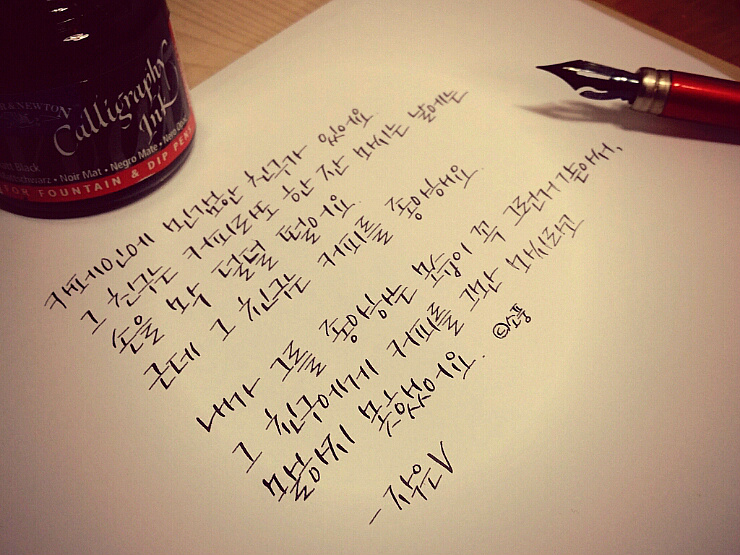 R & NEWTON
Calligraphy
Ink
Matt Black
Noir Mat • Negro Mate • Nero
FOR FOUNTAIN & DIP PENS
카페인에 민감한 친구가 있어요
그 친구는 커피라도 한 잔 마시는 날에는
손을 막 덜덜 떨어요.
근데 그 친구는 커피를 좋아해요.
내가 그를 좋아하는 모양이 꼭 그런거 같아서,
그 친구에게 커피를 그만 마시라고
말하지 못했어요. ©소풍
- 작은V